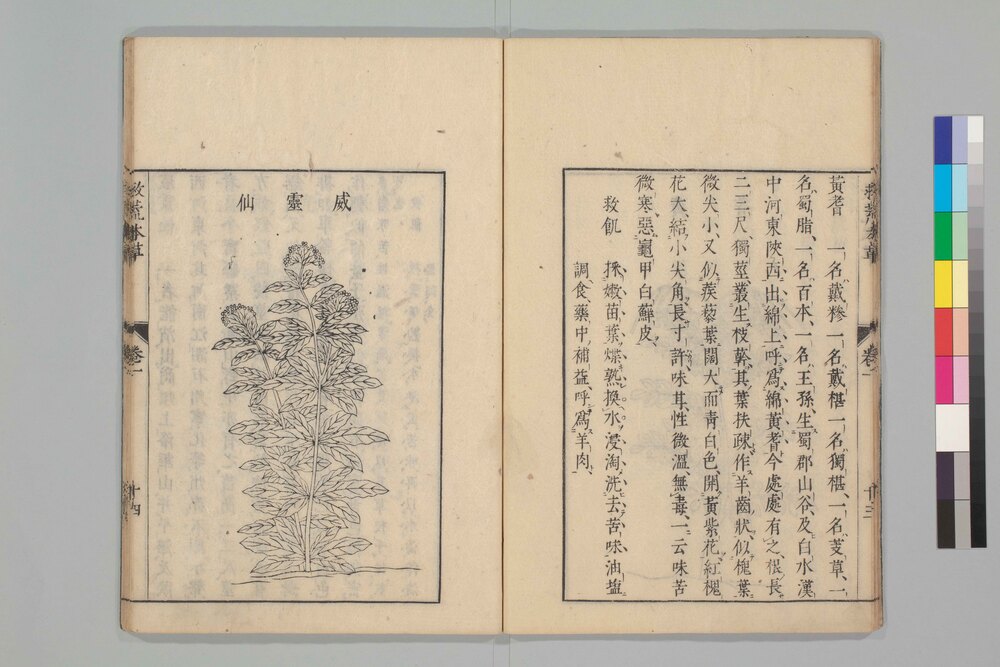 救荒本草 卷一 廿三
黃耆 一名戴糝一名戴椹一名獨椹、一名芰草、一
名蜀脂、一名百本、一名王孫、生蜀郡山谷、及白水漢
中河東陝西出綿上呼爲綿黃耆今處處有之根長
二三尺、獨莖叢生枝幹其葉扶踈作羊齒狀似槐葉
微尖小、又似蒺藜葉闊大而靑白色、開黃紫花、紅槐
花大、結小尖角、長寸許、味甘、性微溫、無毒、一云味苦
微寒、惡龜甲白蘚皮、
救飢 採嫩苗葉煠熟換水浸淘、洗去苦味、油鹽
調食、藥中補益、呼爲羊肉、
威靈仙
救荒本草 卷一 十四